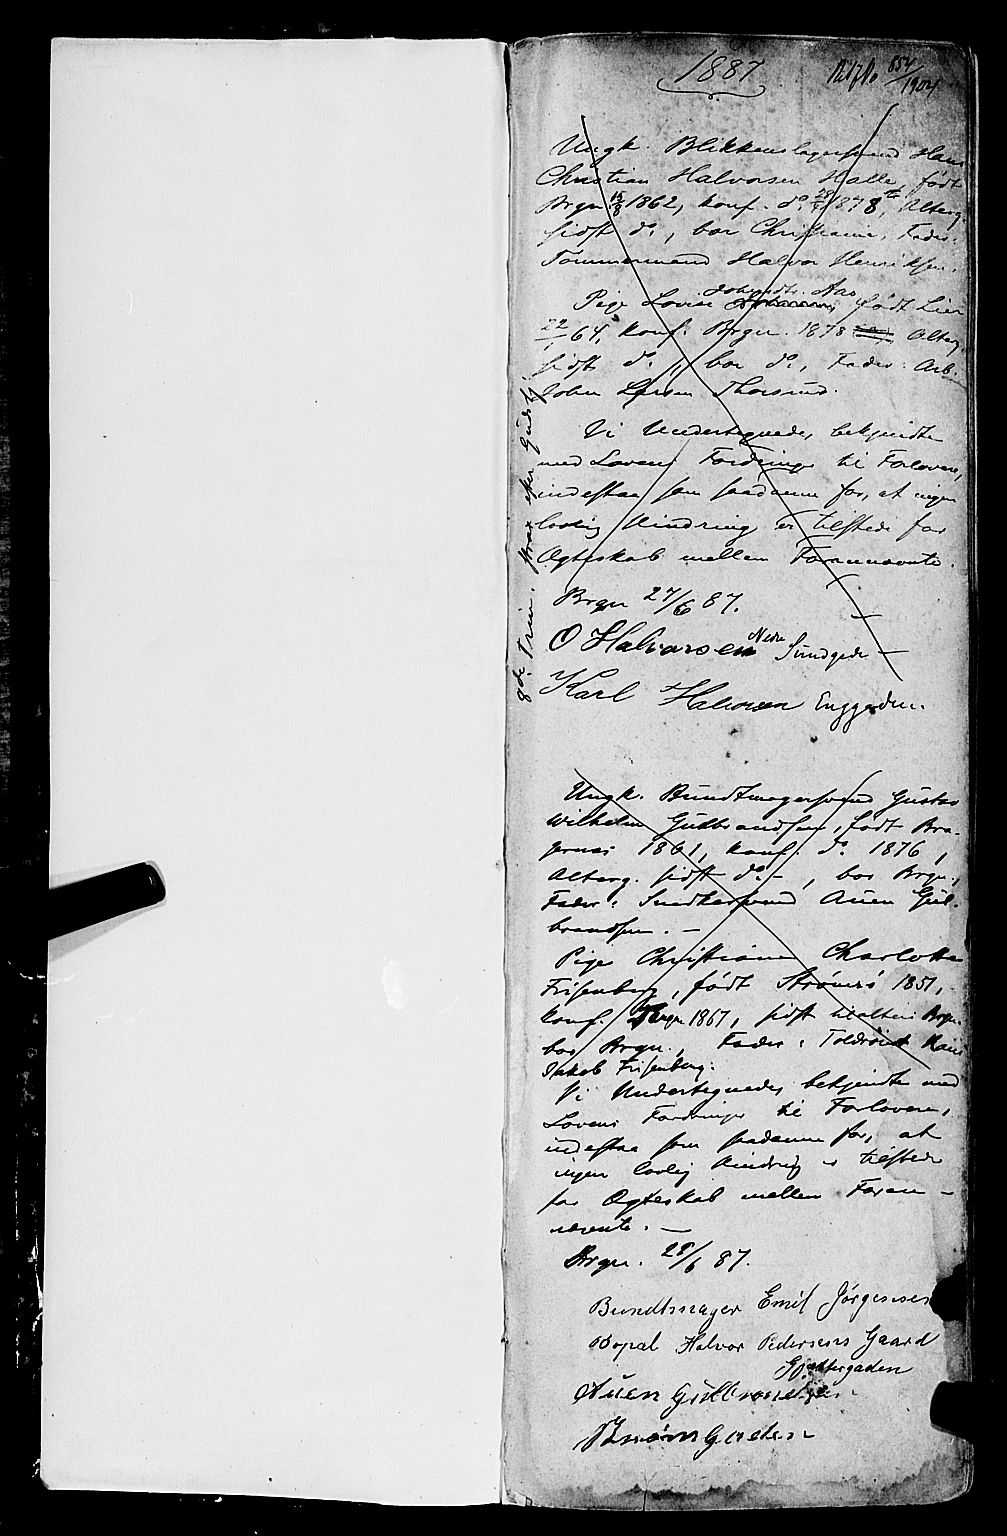 1887
654/1904
Ungk. Blikkenslagersvend Hans
Christian Halvorsen Halle, født
Brgn. 15/8 1862, konf. do. 1878, Alterg.
sidst do., bor Christiania, Fader:
Tømmermand Halvor Henriksen.
Pige Lovise Johnsdtr. Aas, født Lier
64, konf. Brgn. 1878 Alterg.
sidst do., bor do., Fader: Arb.
John Larsen Thorsrud.
8de. Trin. strax efter Gudstj.
Vi Undertegnede, bekjendte
med Lovens Fordringer til Forlovere,
indestaa som saadanne for, at ingen
lovlig Hindring er tilstede for
Ægteskab mellem Forannævnte.
Brgn 27/6 87.
O Halvorsen Nedre Sundgade
Karl Halvorsen Enggaden.
Ungk. Bundtmagersvend Gustav
Wilhelm Gulbrandsen, født Bra-
gernes 1861, konf. do. 1876,
Alterg. sidst do. - , bor Brgn.,
Fader: Snedkersvend Auen Gul-
brandsen. -
Pige Christiane Charlotte
Frisenberg, født Strømsø 1851,
konf. Brgn 1867, sidst tilalters Brgn.
bor Brgn., Fader: Hans
Jakob Frisenberg.
Vi Undertegnede, bekjendte med
Lovens Fordringer til Forlovere,
indestaa som saadanne for, at
ingen lovlig Hindring er tilstede
for Ægteskab mellem Foran-
nævnte. -
Brgn. 28/6 87.
Bundtmager Emil Jørgensen
Bopæl Halvor Pedersens Gaard
Auen Gulbrandsen